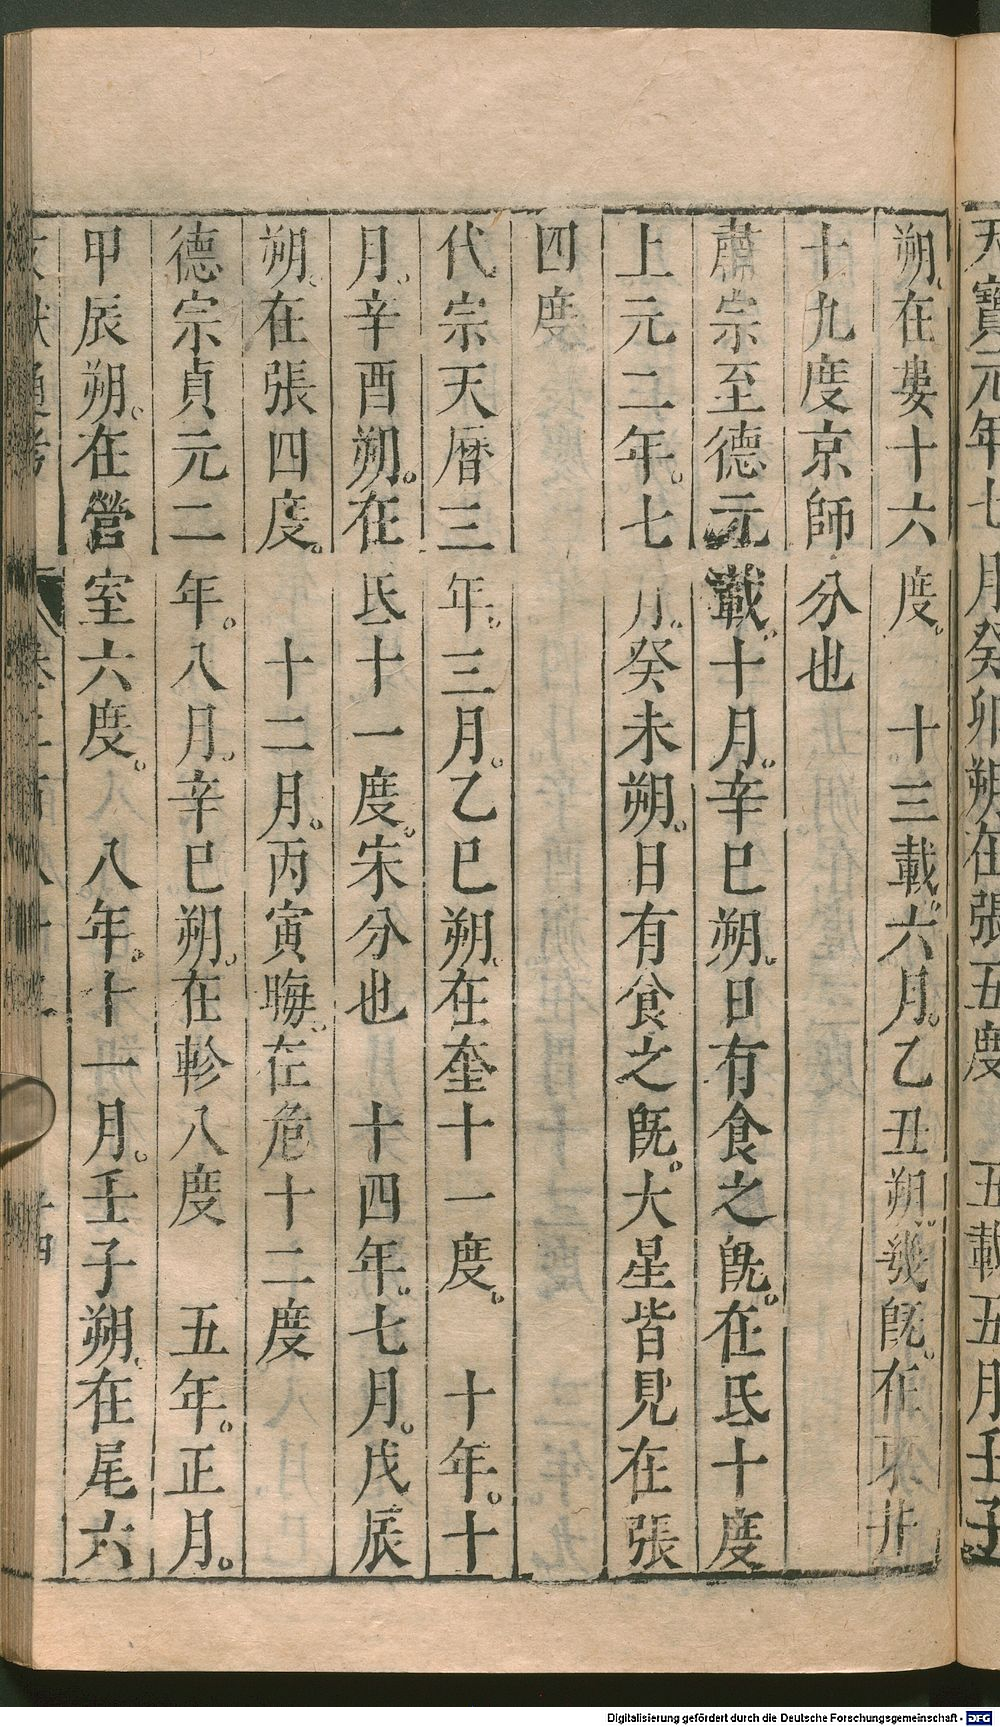 天寶元年七月癸卯朔在張五度　五載五月壬子
朔。在婁十六度。　十三載。六月。乙丑朔。幾旣。在東井
十九度京師分也
肅宗至德元載。十月。辛巳朔。日有食之旣。在氐十度
上元二年。七月。癸未朔。日有食之旣。大星皆見在張
四度
代宗天曆三年。三月。乙巳朔。在奎十一度。　十年。十
月。辛酉朔。在氐十一度。宋分也　十四年。七月。戊辰
朔。在張四度。　十二月。丙寅晦。在危十二度
德宗貞元二年。八月。辛巳朔。在軫八度　五年。正月。
甲辰朔。在營室六度。　八年。十一月。壬子朔。在尾六
Digitalisierung gefördert durch die Deutsche Forschungsgemeinschaft - DFG